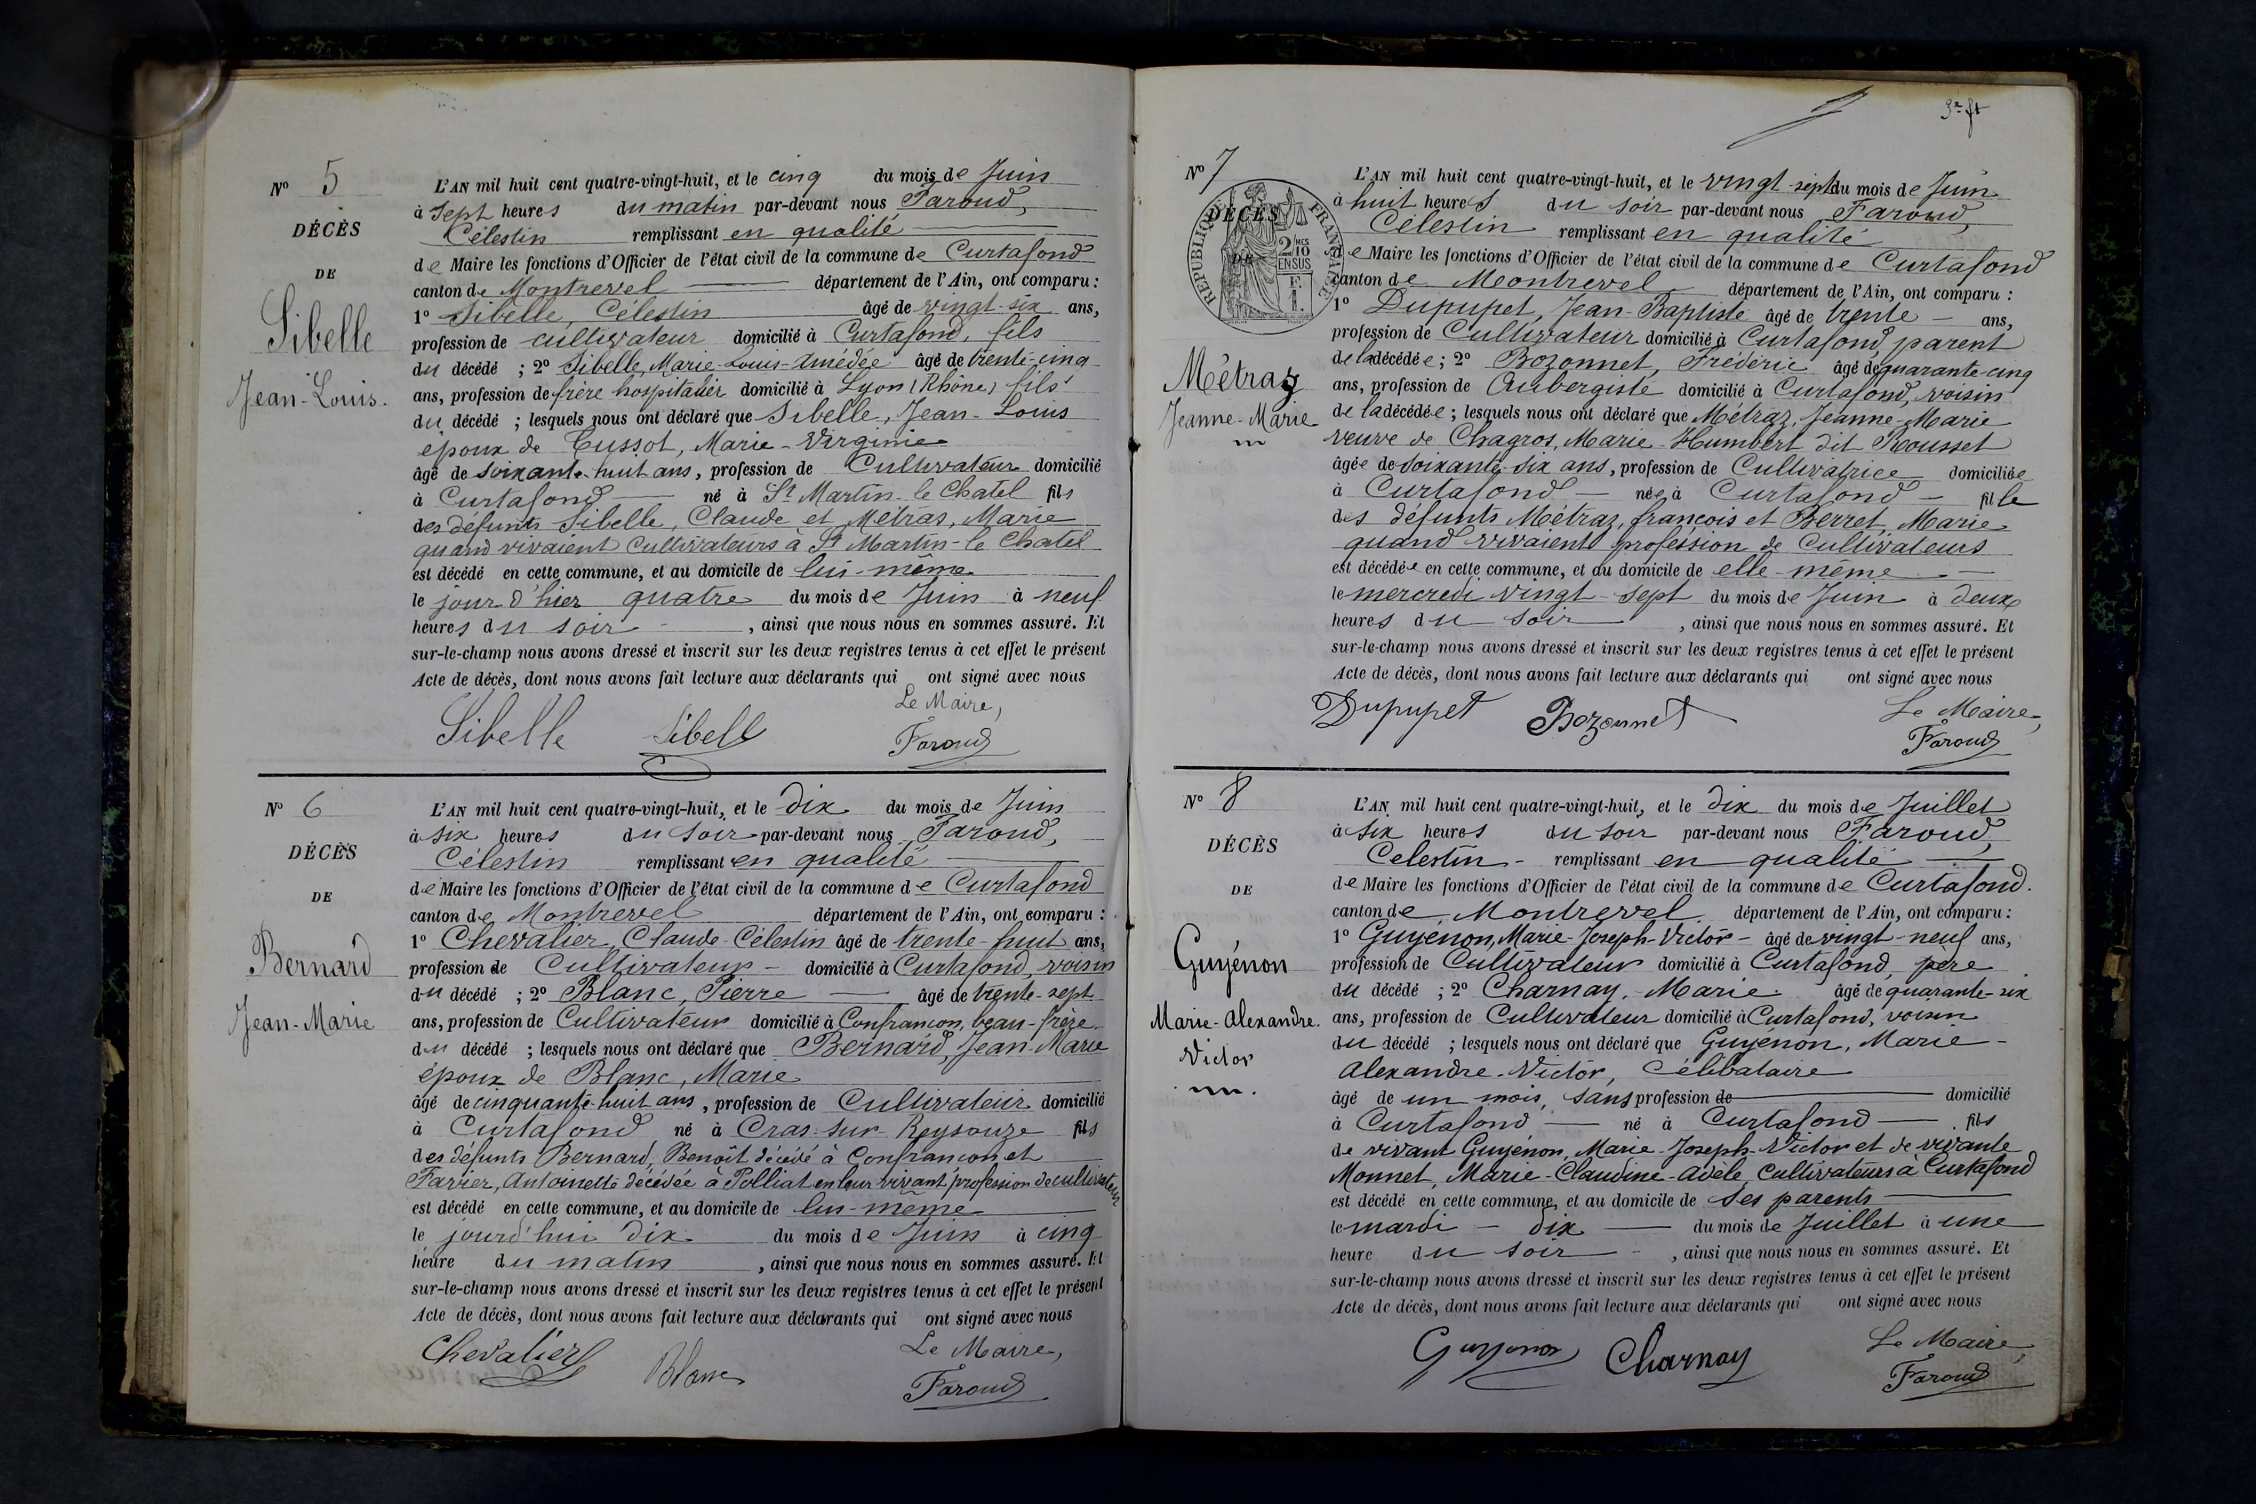 N° 5
DÉCÈS
DE
Sibelle
Jean-Louis.
L'AN mil huit cent quatre-vingt-huit, et le cinq du mois de Juin
à sept heures du matin par-devant nous Faroud,
Célestin remplissant en qualité
de Maire les fonctions d'Officier de l'état civil de la commune de Curtafond
canton de Montrevel département de l'Ain, ont comparu :
1° Sibelle, Célestin âgé de vingt-six ans,
profession de cultivateur domicilié à Curtafond, fils
du décédé ; 2° Sibelle, Marie-Louis-Amédée âgé de trente-cinq
ans, profession de frère hospitalier domicilié à Lyon (Rhône) fils
du décédé ; lesquels nous ont déclaré que Sibelle, Jean-Louis
époux de Cussot, Marie-Virginie
âgé de soixante-huit ans, profession de Cultivateur domicilié
à Curtafond né à St Martin-le Chatel fils
des défunts Sibelle, Claude et Métras, Marie
quand vivaient Cultivateurs à St Martin-le Chatel
est décédé en cette commune, et au domicile de lui-même
le jour d'hier quatre du mois de Juin à neuf
heures du soir, ainsi que nous nous en sommes assuré. Et
sur-le-champ nous avons dressé et inscrit sur les deux registres tenus à cet effet le présent
Acte de décès, dont nous avons fait lecture aux déclarants qui ont signé avec nous
Le Maire,
Sibelle Sibelle Faroud
N° 6
DÉCÈS
DE
Bernard
Jean-Marie
L'AN mil huit cent quatre-vingt-huit, et le dix du mois de Juin
à six heures du soir par-devant nous Faroud,
Célestin remplissant en qualité
de Maire les fonctions d'Officier de l'état civil de la commune de Curtafond
canton de Montrevel département de l'Ain, ont comparu :
1° Chevalier, Claude-Célestin âgé de trente-huit ans,
profession de Cultivateur domicilié à Curtafond, voisin
du décédé ; 2° Blanc, Pierre âgé de trente-sept
ans, profession de Cultivateur domicilié à Confrançon, beau-frère
du décédé ; lesquels nous ont déclaré que Bernard, Jean-Marie
époux de Blanc, Marie
âgé de cinquante-huit ans, profession de Cultivateur domicilié
à Curtafond né à Cras-sur-Reysouze fils
des défunts Bernard, Benoît décédé à Confrançon et
Favier, Antoinette décédée à Polliat en leur vivant profession de cultivateur
est décédé en cette commune, et au domicile de lui-même
le jourd'hui dix du mois de Juin à cinq
heure du matin, ainsi que nous nous en sommes assuré. Et
sur-le-champ nous avons dressé et inscrit sur les deux registres tenus à cet effet le présent
Acte de décès, dont nous avons fait lecture aux déclarants qui ont signé avec nous
Le Maire,
Chevalier Blanc Faroud
N° 7
DÉCÈS
DE
RÉPUBLIQUE FRANÇAISE
2/10 MES EN SUS
Métraz
Jeanne-Marie
L'AN mil huit cent quatre-vingt-huit, et le vingt-sept du mois de Juin
à huit heures du soir par-devant nous Faroud,
Célestin remplissant en qualité
de Maire les fonctions d'Officier de l'état civil de la commune de Curtafond
canton de Montrevel département de l'Ain, ont comparu :
1° Dupupet, Jean-Baptiste âgé de trente ans,
profession de Cultivateur domicilié à Curtafond, parent
de la décédée ; 2° Bozonnet, Frédéric âgé de quarante-cinq
ans, profession de Aubergiste domicilié à Curtafond, voisin
de la décédée ; lesquels nous ont déclaré que Métraz, Jeanne-Marie
veuve de Chagros, Marie-Humbert dit Rousset
âgée de soixante-six ans, profession de Cultivatrice domiciliée
à Curtafond née à Curtafond fille
des défunts Métraz, françois et Berret, Marie
quand vivaient profession de Cultivateurs
est décédée en cette commune, et au domicile de elle-même
le mercredi vingt-sept du mois de Juin à deux
heures du soir, ainsi que nous nous en sommes assuré. Et
sur-le-champ nous avons dressé et inscrit sur les deux registres tenus à cet effet le présent
Acte de décès, dont nous avons fait lecture aux déclarants qui ont signé avec nous
Le Maire,
Dupupet Bozonnet Faroud
N° 8
DÉCÈS
DE
Guyénon
Marie-Alexandre.
Victor
L'AN mil huit cent quatre-vingt-huit, et le dix du mois de Juillet
à six heures du soir par-devant nous Faroud,
Célestin - remplissant en qualité
de Maire les fonctions d'Officier de l'état civil de la commune de Curtafond.
canton de Montrevel département de l'Ain, ont comparu :
1° Guyénon, Marie-Joseph-Victor - âgé de vingt-neuf ans,
profession de Cultivateur domicilié à Curtafond, père
du décédé ; 2° Charnay, Marie âgé de quarante-six
ans, profession de Cultivateur domicilié à Curtafond, voisin
du décédé ; lesquels nous ont déclaré que Guyénon, Marie-
Alexandre-Victor, Célibataire
âgé de un mois, sans profession de domicilié
à Curtafond né à Curtafond fils
de vivant Guyénon, Marie-Joseph-Victor et de vivante
Monnet, Marie-Claudine-Adèle, Cultivateurs à Curtafond
est décédé en cette commune, et au domicile de ses parents
le mardi - dix du mois de Juillet à une
heure du soir, ainsi que nous nous en sommes assuré. Et
sur-le-champ nous avons dressé et inscrit sur les deux registres tenus à cet effet le présent
Acte de décès, dont nous avons fait lecture aux déclarants qui ont signé avec nous
Le Maire,
Guyénon Charnay Faroud